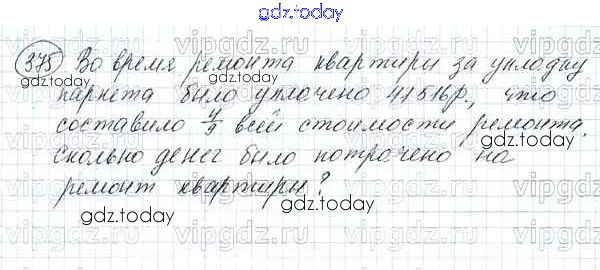 gdz.today
375 Во время ремонта квартиры за укладку
паркета было уплачено 41516р., что
составило 4/9 всей стоимости ремонта.
Сколько денег было потрачено на
ремонт квартиры?
gdz.today
gdz.today
gdz.today
gdz.today
gdz.today
gdz.today